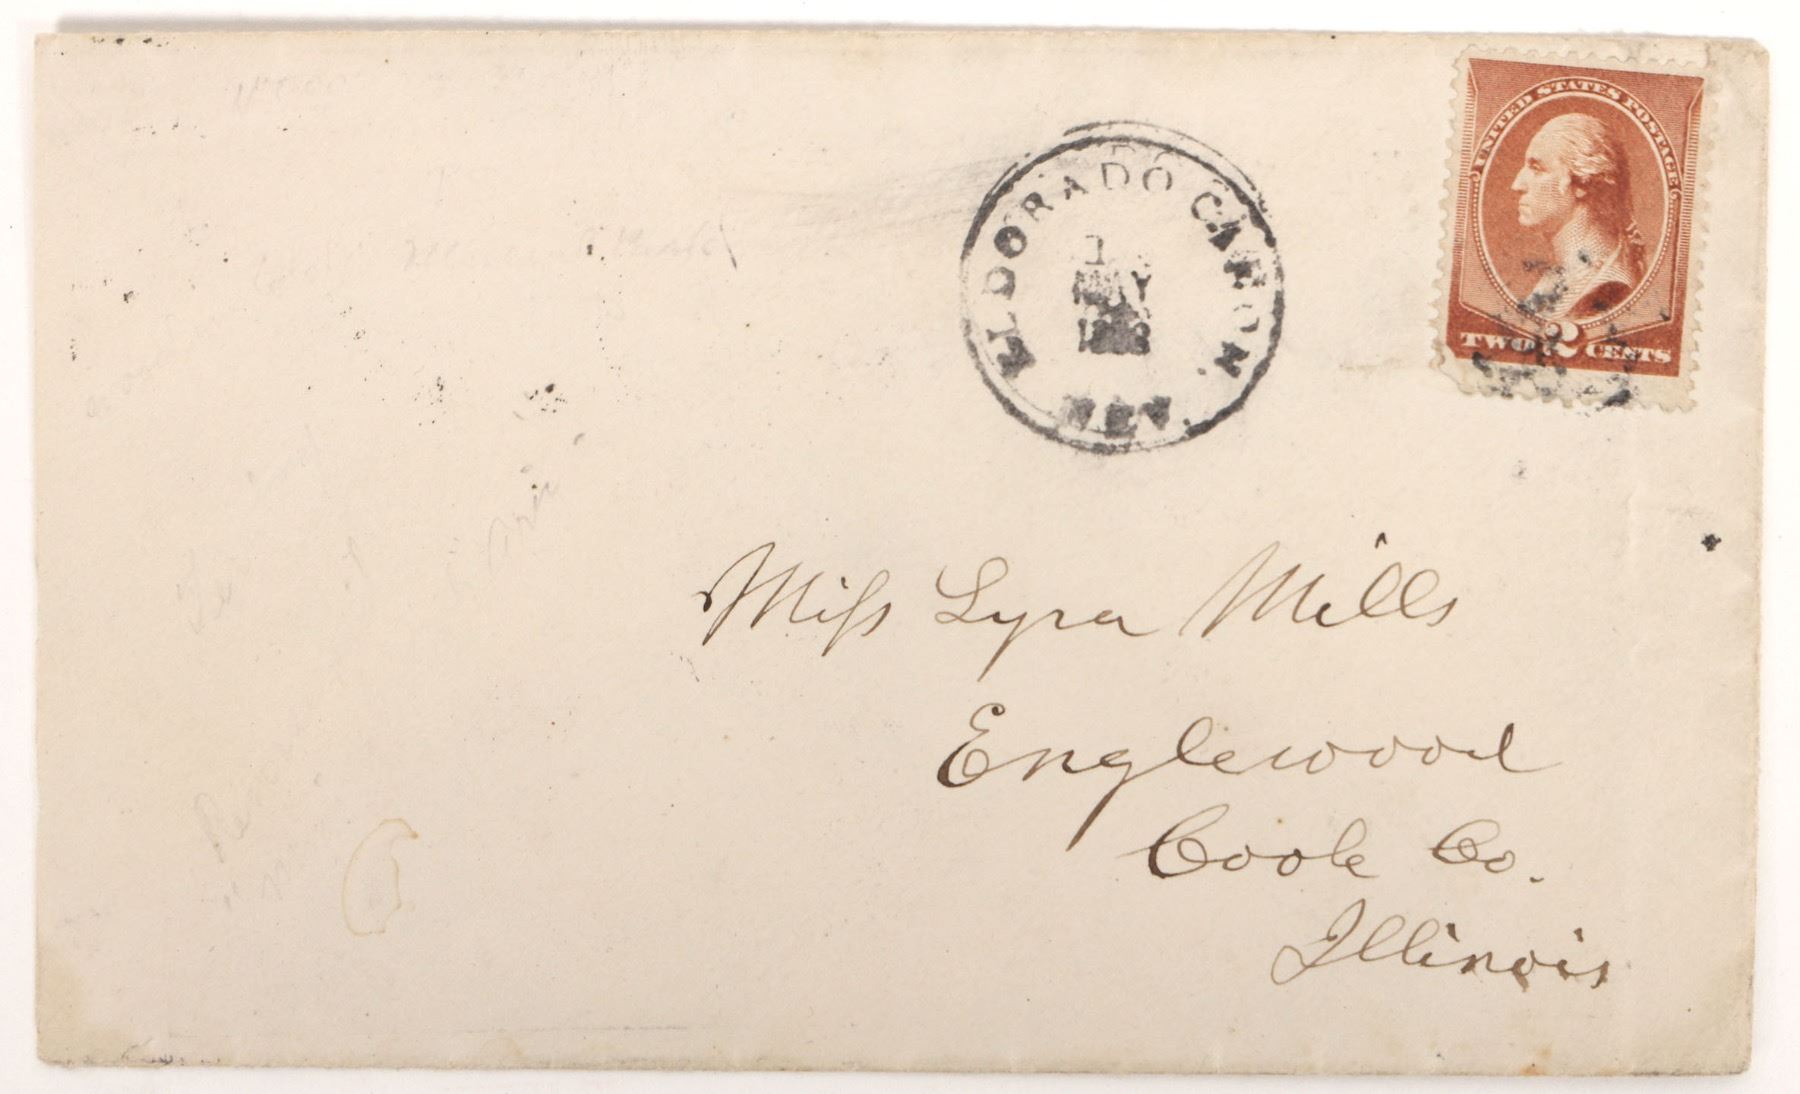 ELDORADO CAÑON.
MAY
NEV.
UNITED STATES POSTAGE
TWO 2 CENTS
Miss Lyra Mills
Englewood
Cook Co.
Illinois